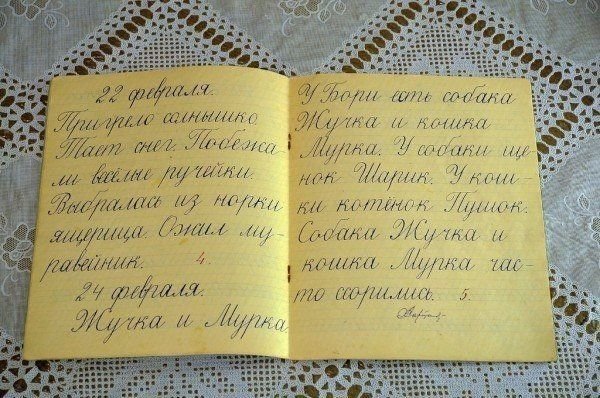 22 февраля.
Пригрело солнышко.
Тает снег. Побежа
ли весёлые ручейки.
Выбралась из норки
ящерица. Ожил му-
равейник. 4.
24 февраля.
Жучка и Мурка
У Бори есть собака
Жучка и кошка
Мурка. У собаки ще
нок Шарик. У кош-
ки котёнок Пушок.
Собака Жучка и
кошка Мурка час-
то ссорились. 5.